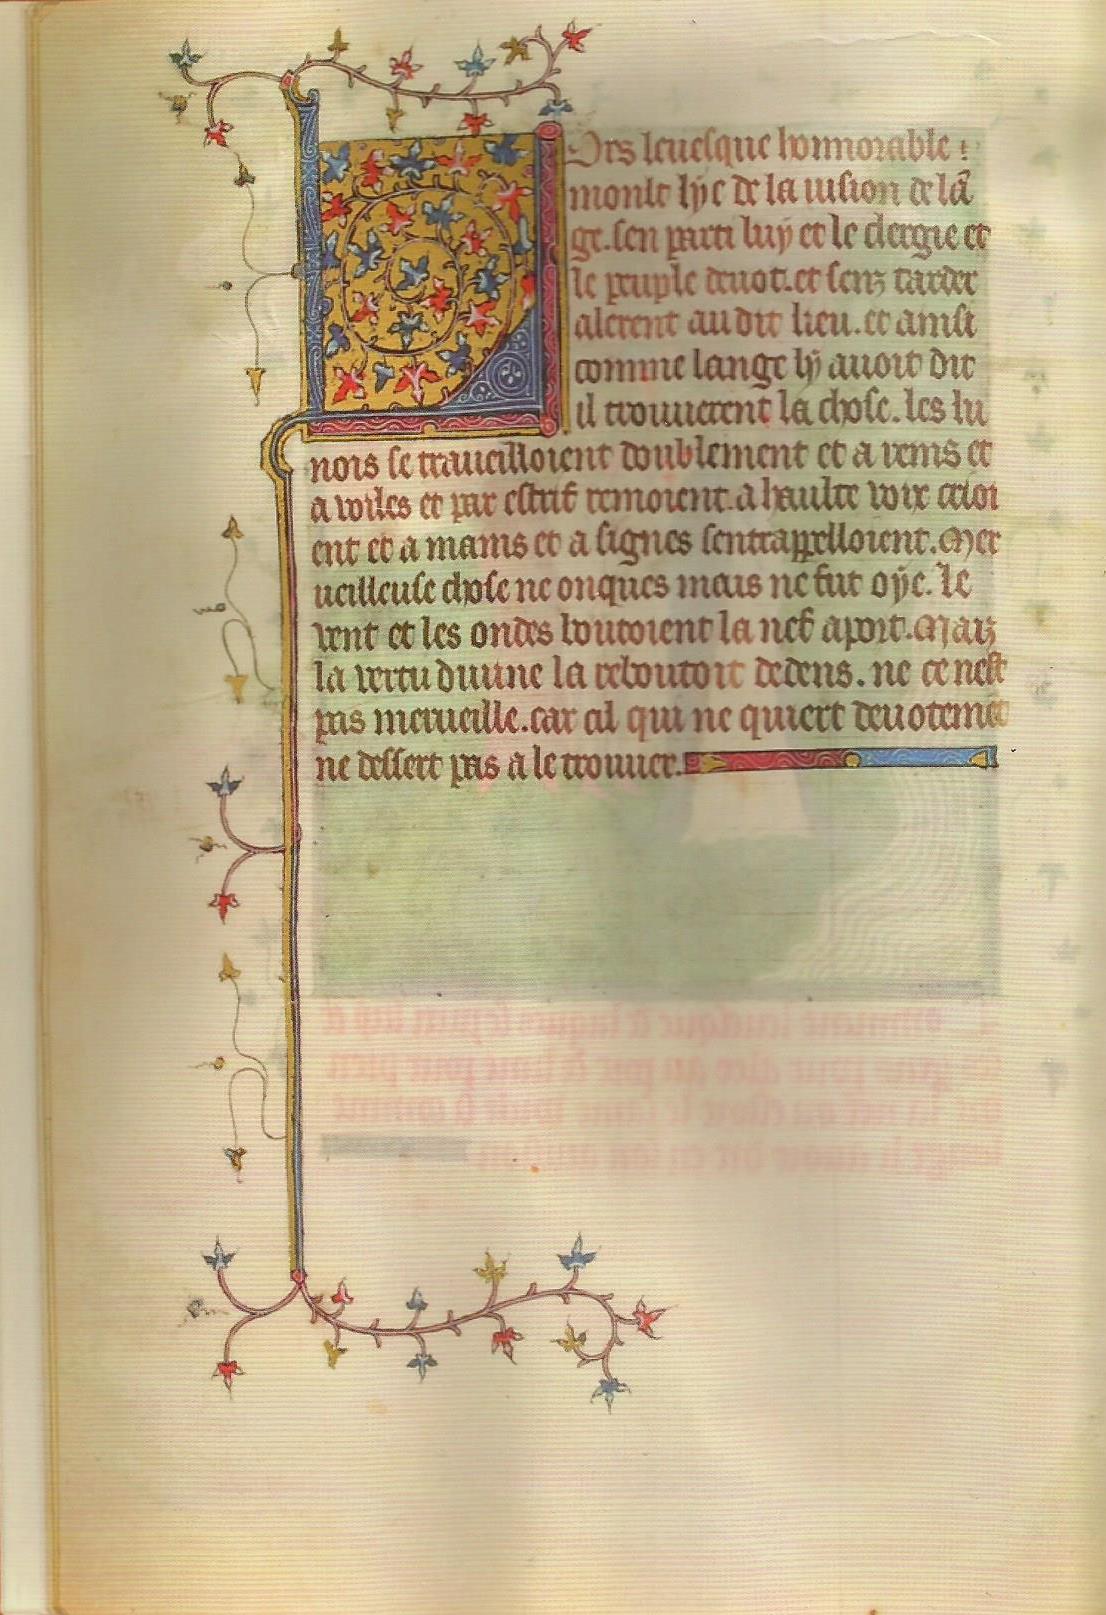 Lors leuesque honnorable :
moult lye de la uision de lā
ge. sen parti luy et le clergie et
le peuple deuot. et senz tarder
alerent au dit lieu. et ainsi
comme lange ly auoit dit
il trouuerent la chose. les lu
nois se traueilloient doublement et a rems et
a voiles et par estrif remoient. a haulte voix crioi
ent et a mains et a signes sentrappelloient. Mer
ueilleuse chose ne onques mais ne fut oye. Le
vent et les ondes boutoient la nef a port. Maiz
la vertu diuine la reboutoit dedens. ne ce nest
pas merueille. car cil qui ne quiert deuotemēt
ne dessert pas a le trouuer.